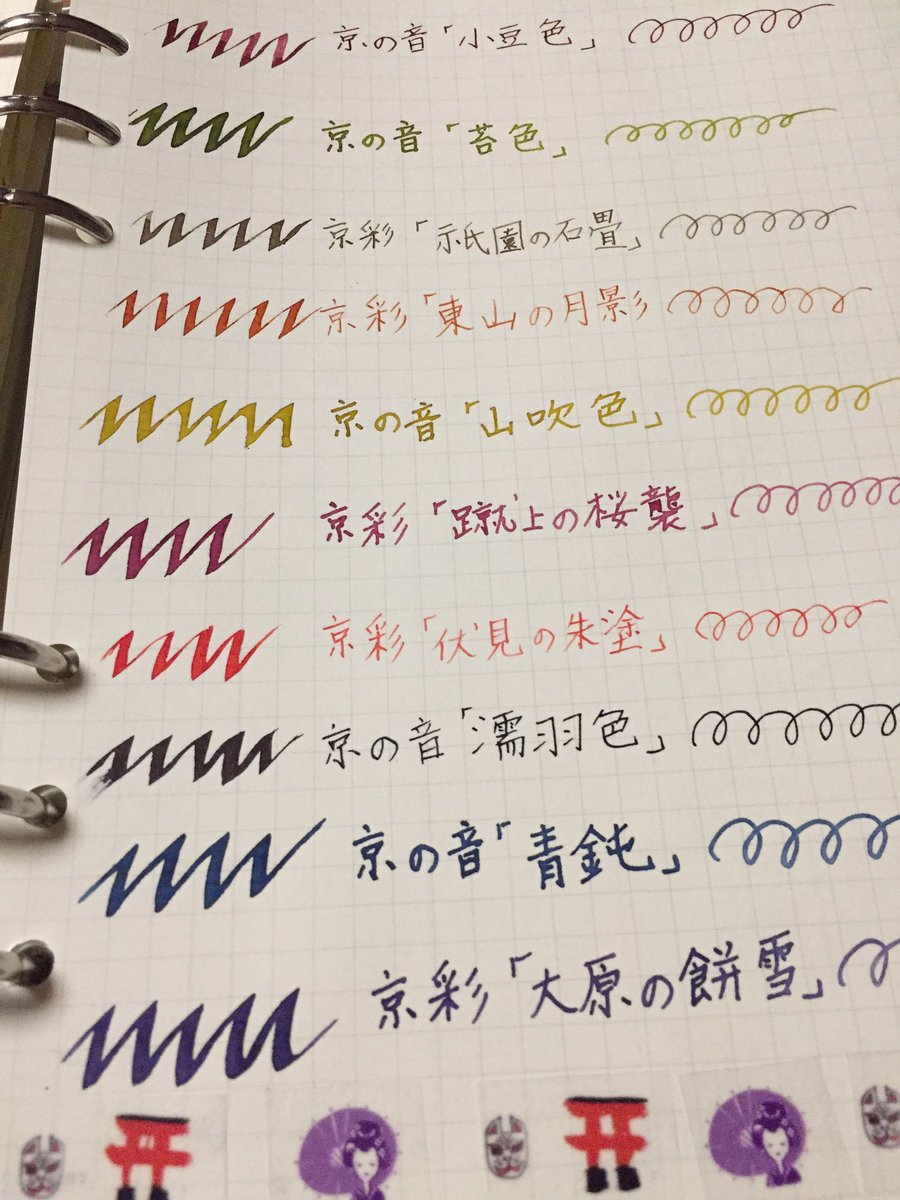 京の音「小豆色」
京の音「苔色」
京彩「祇園の石畳」
京彩「東山の月影
京の音「山吹色」
京彩「蹴上の桜襲」
京彩「伏見の朱塗」
京の音「濡羽色」
京の音「青鈍」
京彩「大原の餅雪」